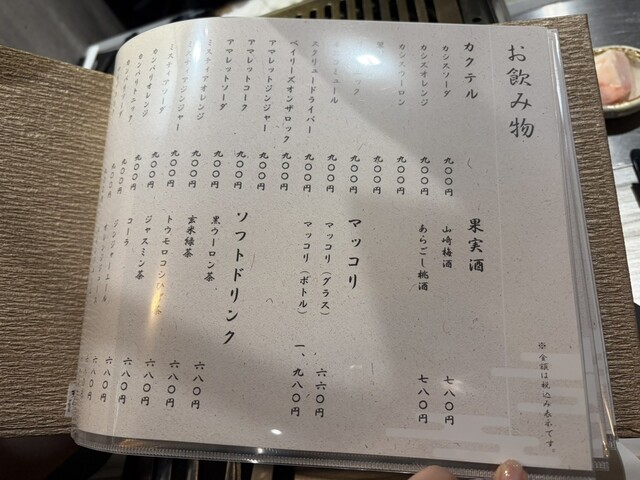 お飲み物
カクテル
カシスソーダ 九〇〇円
カシスオレンジ 九〇〇円
カシスウーロン 九〇〇円
九〇〇円
九〇〇円
スクリュードライバー 九〇〇円
ベイリーズオンザロック 九〇〇円
アマレットジンジャー 九〇〇円
アマレットコーク 九〇〇円
アマレットソーダ 九〇〇円
九〇〇円
九〇〇円
カンパリソーダ 九〇〇円
カンパリオレンジ 九〇〇円
果実酒
山崎梅酒 七八〇円
あらごし桃酒 七八〇円
マッコリ
マッコリ（グラス） 六六〇円
マッコリ（ボトル） 一、九八〇円
ソフトドリンク
黒ウーロン茶 六八〇円
玄米緑茶 六八〇円
トウモロコシひげ茶 六八〇円
ジャスミン茶 六八〇円
コーラ 六八〇円
ジンジャーエール 六八〇円
※金額は税込み表示です。